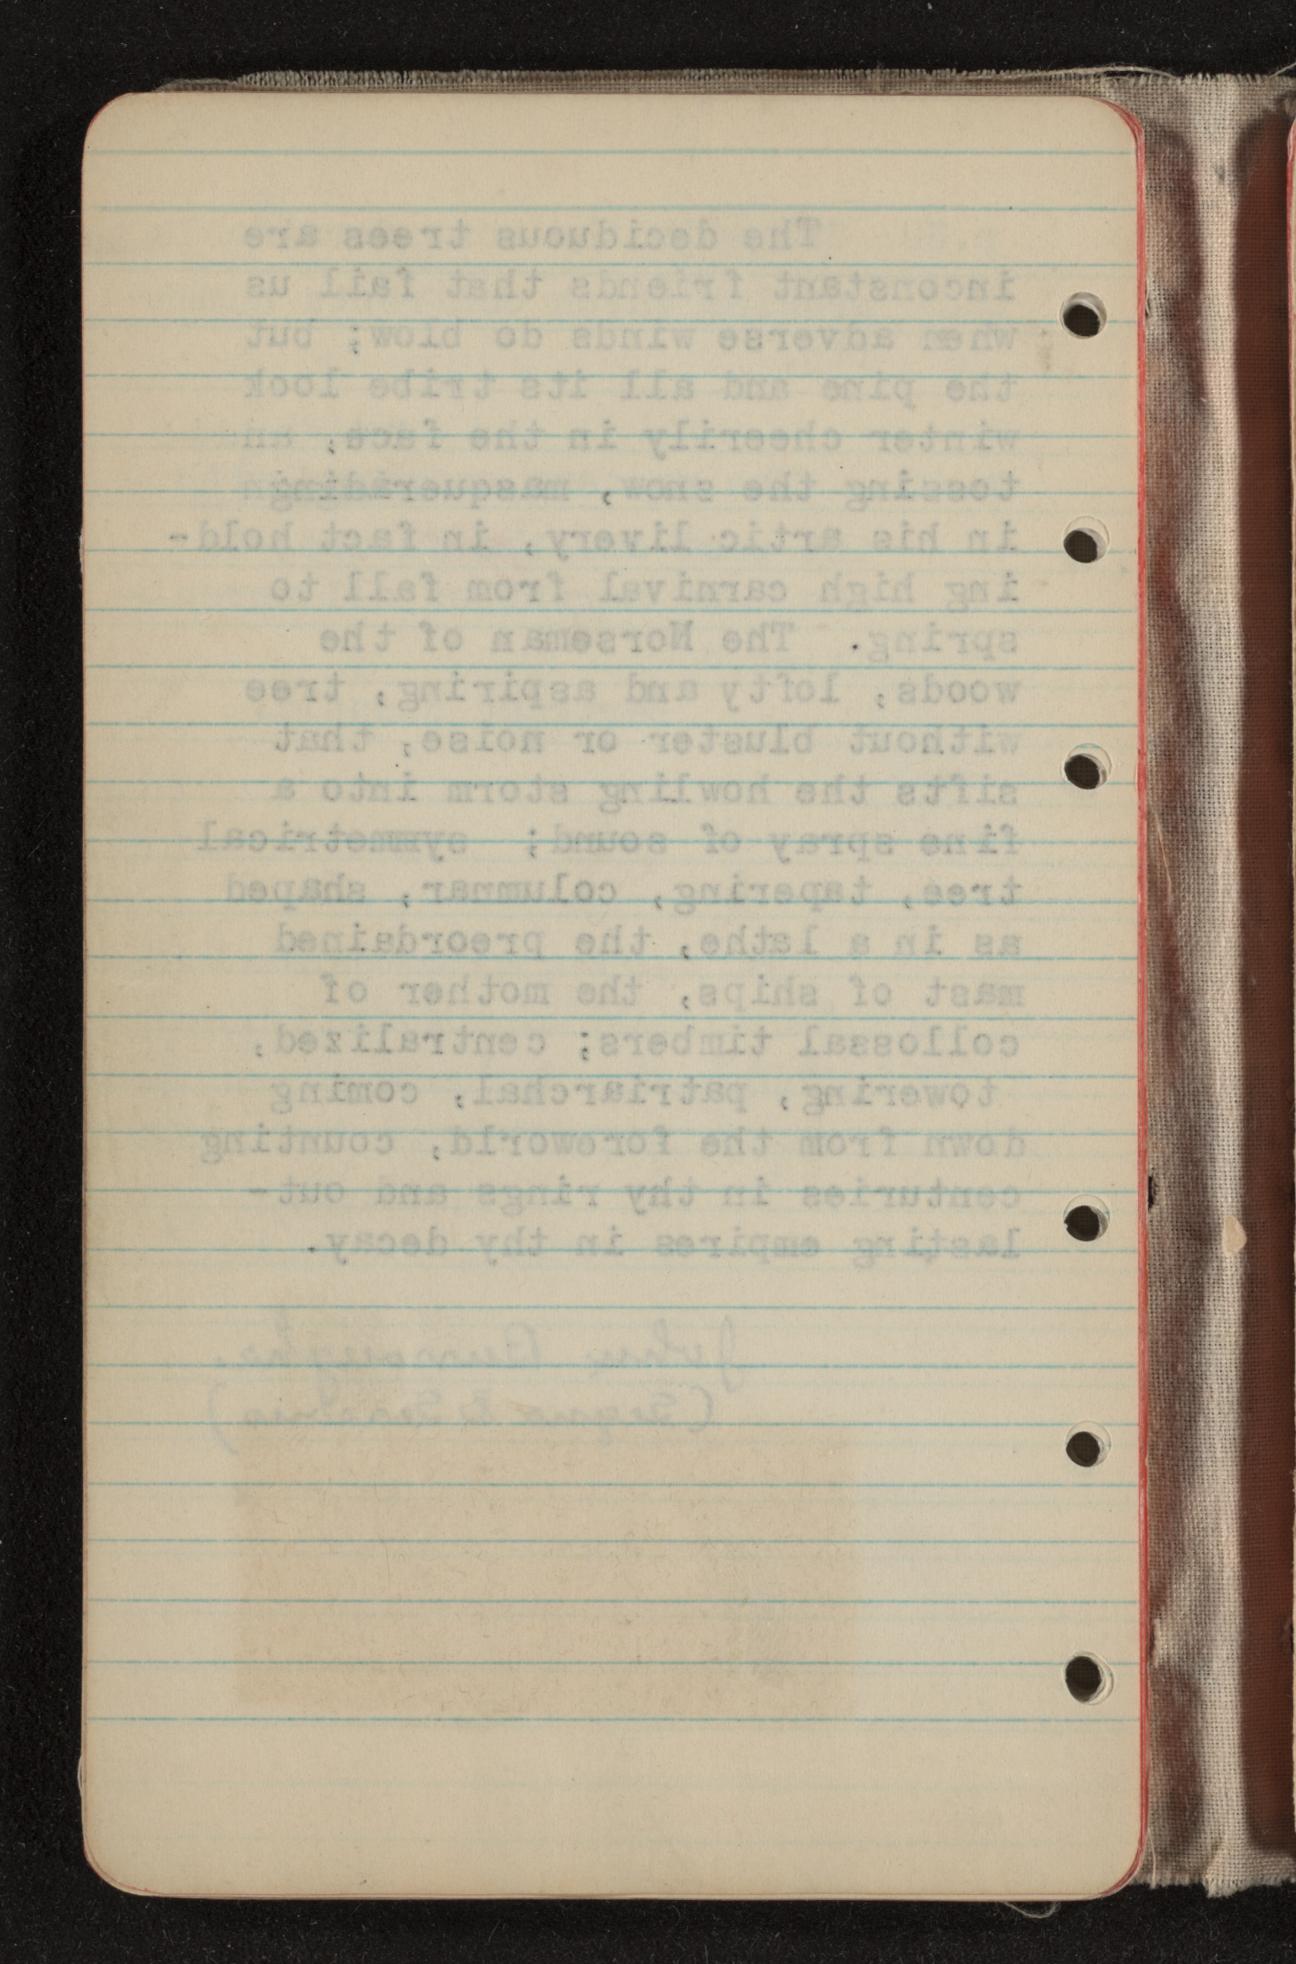 The deciduous trees are
inconstant friends that fail us
when adverse winds do blow; but
the pine and all its tribe look
winter cheerily in the face, an
tossing the snow, masquerading
in his artic livery, in fact hold-
ing high carnival from fall to
spring. The Norseman of the
woods, lofty and aspiring, tree
without bluster or noise, that
sifts the howling storm into a
fine spray of sound; symmetrical
tree, tapering, columnar, shaped
as in a lathe, the preordained
mast of ships, the mother of
collossal timbers; centralized,
towering, patriarchal, coming
down from the foreworld, counting
centuries in thy rings and out-
lasting empires in thy decay.
John Burroughs.